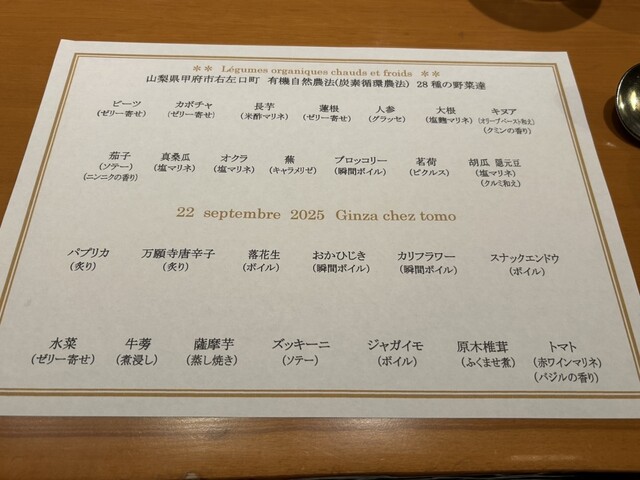 ** Légumes organiques chauds et froids **
山梨県甲府市右左口町 有機自然農法(炭素循環農法) 28種の野菜達
ビーツ カボチャ 長芋 蓮根 人参 大根 キヌア
(ゼリー寄せ) (ゼリー寄せ) (米酢マリネ) (ゼリー寄せ) (グラッセ) (塩麹マリネ) (オリーブペースト和え)
(クミンの香り)
茄子 真桑瓜 オクラ 蕪 ブロッコリー 茗荷 胡瓜 隠元豆
(ソテー) (塩マリネ) (塩マリネ) (キャラメリゼ) (瞬間ボイル) (ピクルス) (塩マリネ)
(ニンニクの香り) (クルミ和え)
22 septembre 2025 Ginza chez tomo
パプリカ 万願寺唐辛子 落花生 おかひじき カリフラワー スナックエンドウ
(炙り) (炙り) (ボイル) (瞬間ボイル) (瞬間ボイル) (ボイル)
水菜 牛蒡 薩摩芋 ズッキーニ ジャガイモ 原木椎茸 トマト
(ゼリー寄せ) (煮浸し) (蒸し焼き) (ソテー) (ボイル) (ふくませ煮) (赤ワインマリネ)
(バジルの香り)